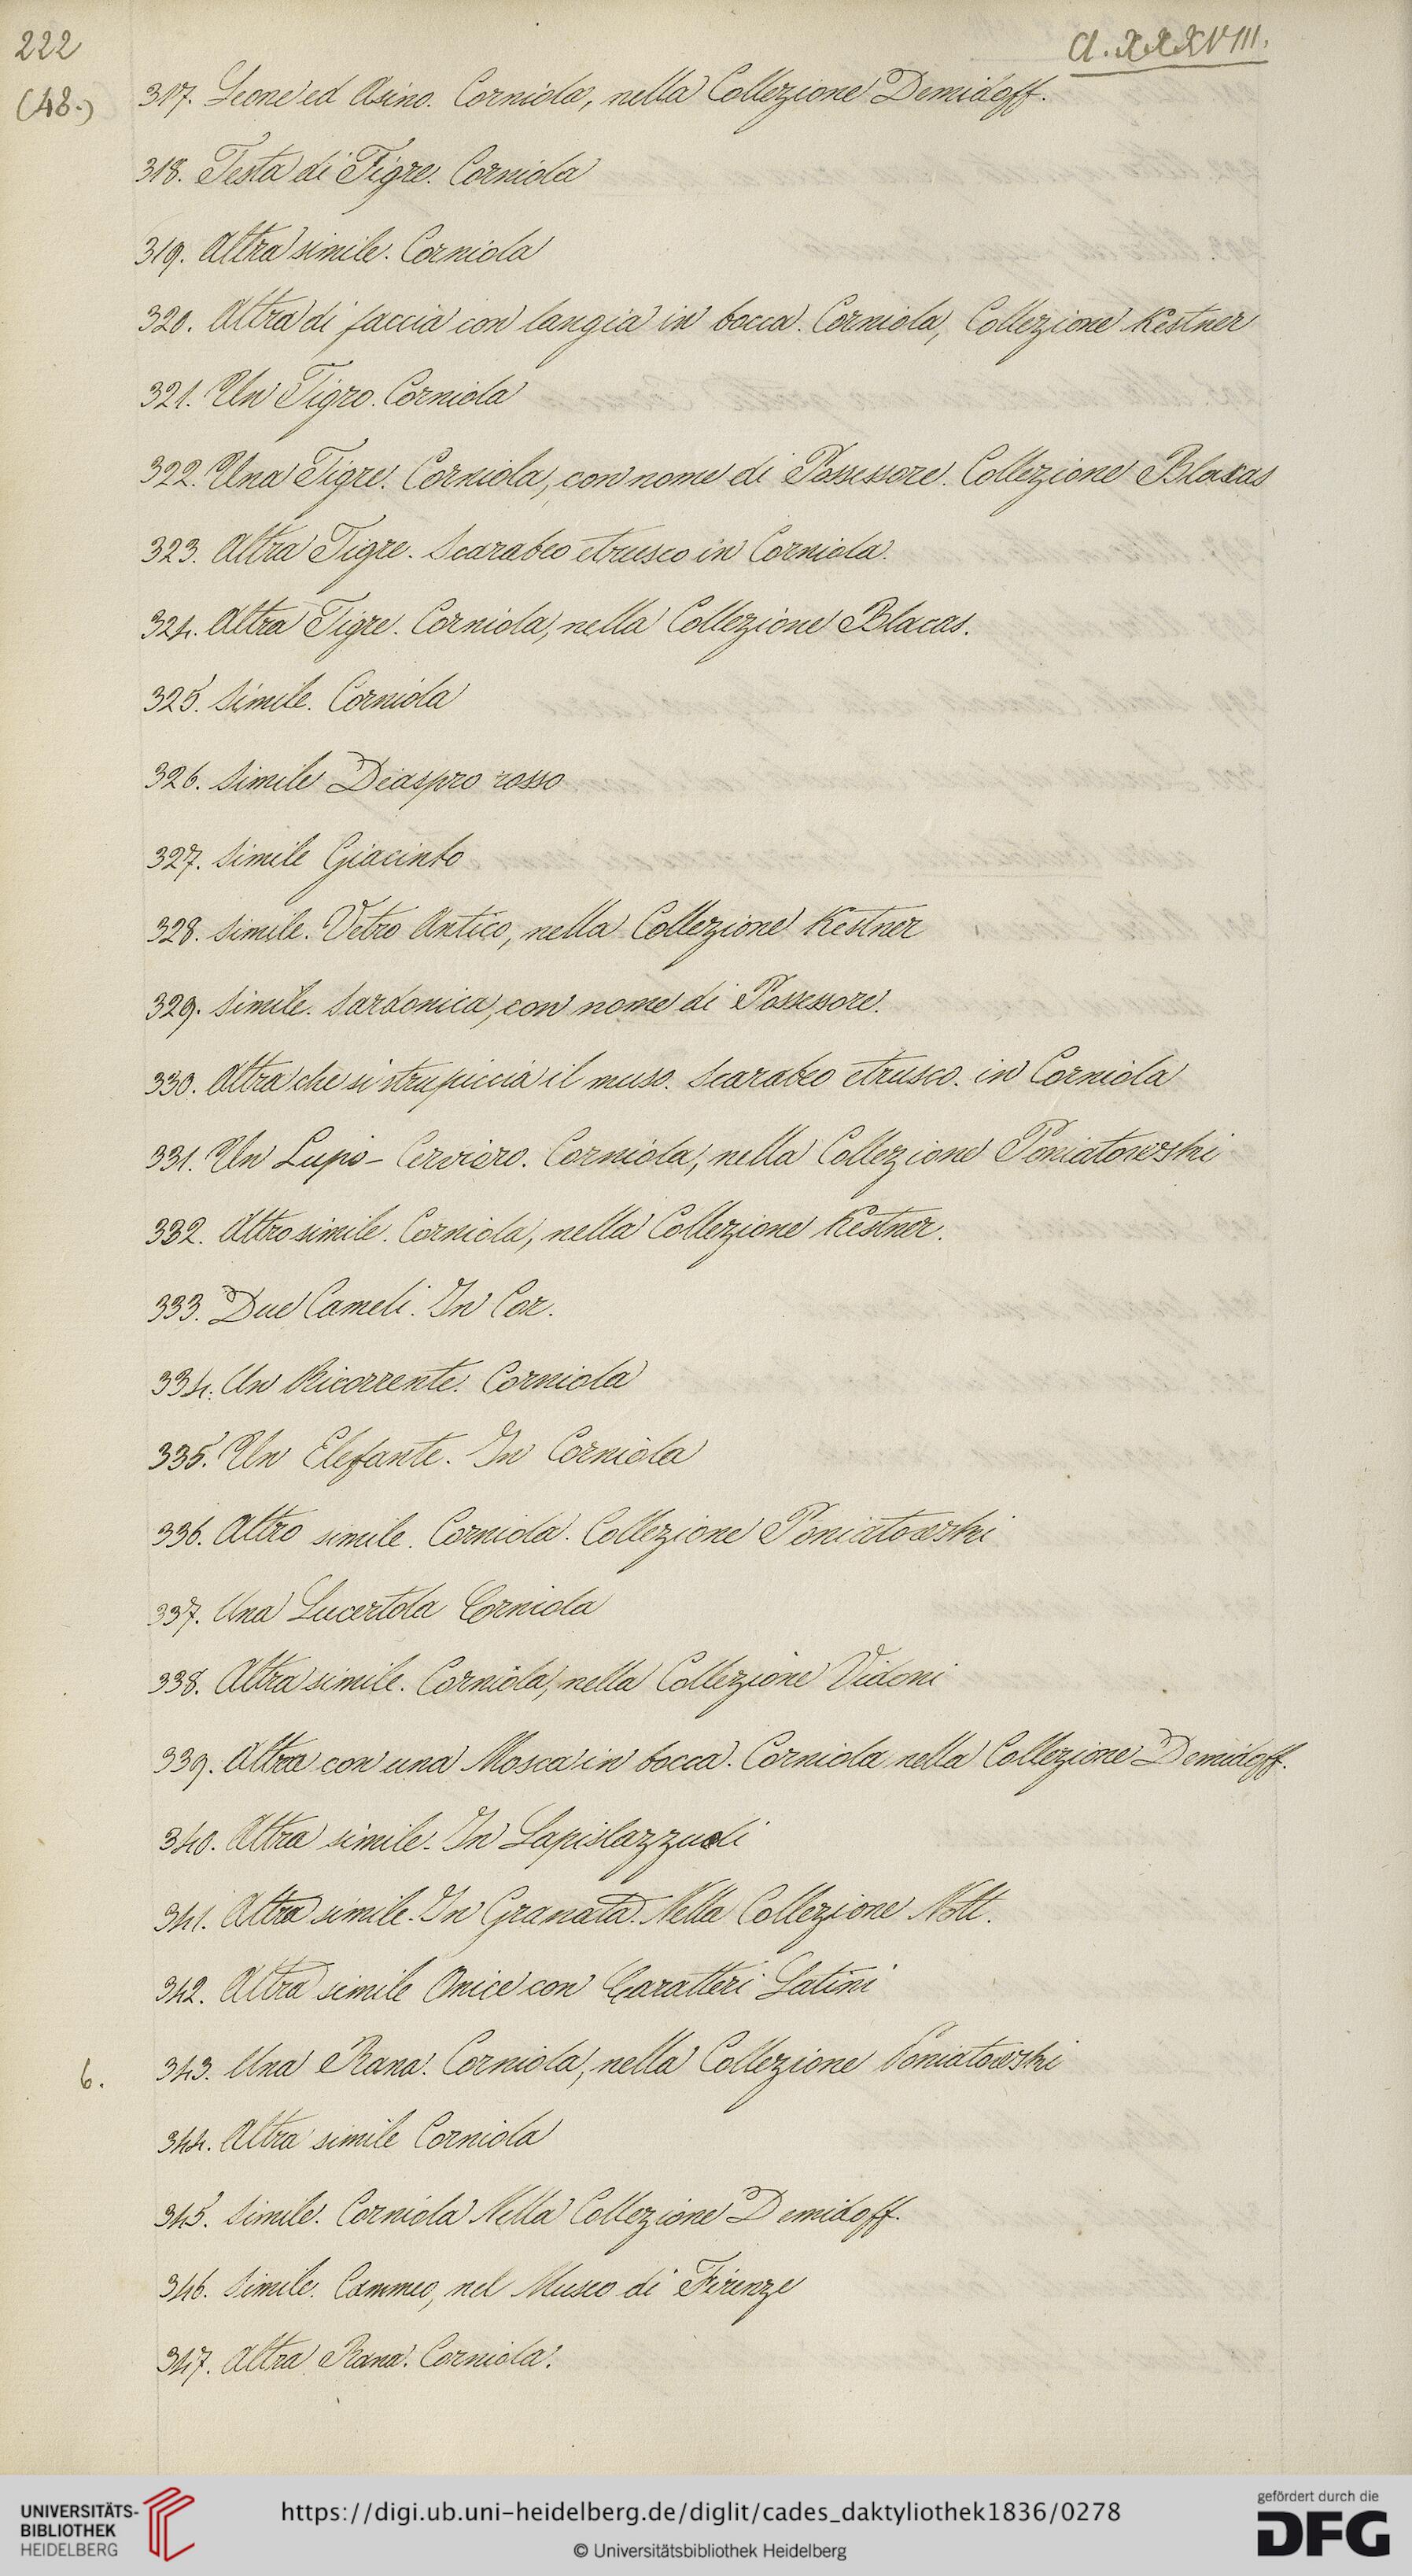 222
Cl. XXXVIII.
(48.)
317. Leone ed Asino. Corniola, nella Collezione Demidoff.
318. Testa di Tigre. Corniola
319. Altra simile. Corniola
320. Altra di faccia con langia in bocca. Corniola, Collezione Kestner
321. Un Tigro. Corniola
322. Una Tigre. Corniola, con nome di Possessore. Collezione Blacas
323. Altra Tigre. Scarabeo etrusco in Corniola.
324. Altra Tigre. Corniola, nella Collezione Blacas.
325. Simile. Corniola
326. Simile Diaspro rosso
327. Simile Giacinto
328. Simile. Vetro Antico, nella Collezione Kestner
329. Simile. Sardonica, con nome di Possessore.
330. Altra che si strupiccia il muso. Scarabeo etrusco. in Corniola
331. Un Lupo-Cerviero. Corniola, nella Collezione Poniatowski
332. Altro simile. Corniola, nella Collezione Kestner.
333. Due Cameli. In Cor.
334. Un Ricorrente. Corniola
335. Un Elefante. In Corniola
336. Altro simile. Corniola. Collezione Poniatowski
337. Una Lucertola Corniola
338. Altra simile. Corniola, nella Collezione Vidoni
339. Altra con una Mosca in bocca. Corniola nella Collezione Demidoff.
340. Altra simile. In Lapislazzuoli
341. Altra simile. In Granata. Nella Collezione Nott.
342. Altra simile Onice con Caratteri Latini
6.
343. Una Rana. Corniola, nella Collezione Poniatowski
344. Altra simile Corniola
345. Simile. Corniola Nella Collezione Demidoff.
346. Simile. Cammeo, nel Museo di Firenze
347. Altra Rana. Corniola.
UNIVERSITÄTS-
BIBLIOTHEK
HEIDELBERG
https://digi.ub.uni-heidelberg.de/diglit/cades_daktyliothek1836/0278
© Universitätsbibliothek Heidelberg
gefördert durch die
DFG